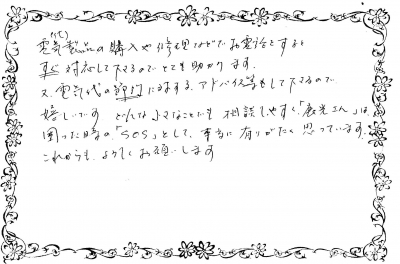 電気製品の購入や修理などでお電話をすると
すぐ対応して下さるのでとても助かります。
又、電気代の節約に対する、アドバイス等もして下さるので、
嬉しいです どんな小さなことでも相談しやすく、「さん」は、
困った時の「SOS」として、本当に有りがたく思っています。
これからも、よろしくお願いします